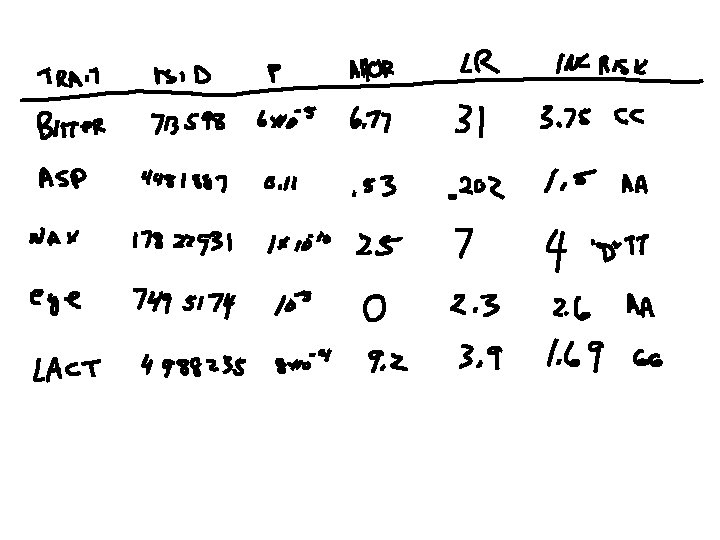 TRAIT RSID P AHOR LR INC RISK
BITTER 713598 6x10-5 6.77 31 3.75 CC
ASP 4481887 0.11 .53 .202 1.5 AA
WAX 17822931 1x10-10 25 7 4 "D" TT
eye 7495174 10-3 0 2.3 2.6 AA
LACT 4988235 8x10-4 9.2 3.9 1.69 GG